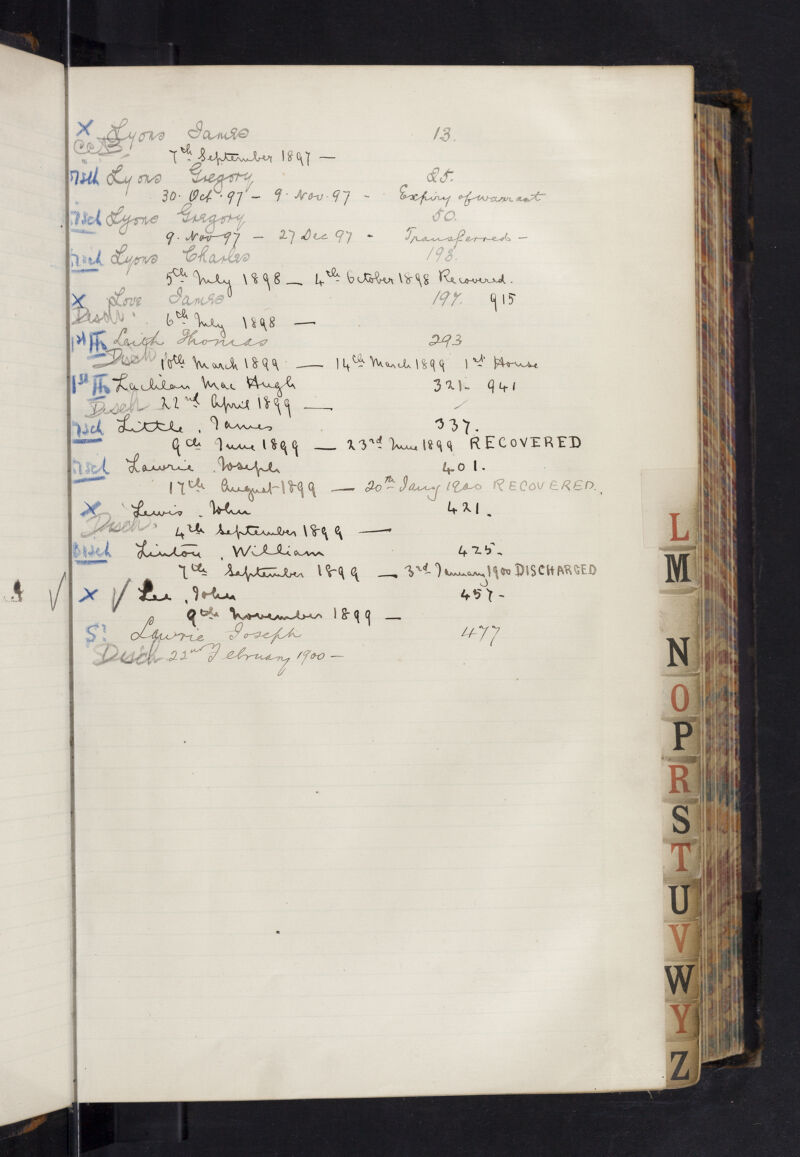 X Lyons James 13.
7th September 1897 —
Disch Lyons Gregory 25.
30. Oct. 97 – 9. Nov. 97 - Expiry of warrant
Disch Lyons Gregory 50.
9. Nov 97 – 27 Dec 97 - Transferred –
Disch Lyons Charles 198.
5th July 1898 — 4th October 1898 Recovered.
X Love James 197. 915
Disch. 6th July 1898 —
1st H Leigh Thomas 293
Disch 10th March 1899 — 14th March 1899 1st House
1st H Lachlan Mac Hugh 321- 941
Disch 22nd April 1899 —
Disch Little, James 337.
9th June 1899 — 23rd June 1899 RECOVERED
Disch Lawrie Joseph 401.
17th August 1899 — 20th Jany 1900 RECOVERED.
X Lewis. John 421.
Disch. 4th September 1899 —
Disch Linton, William 425-
7th September 1899 — 3rd January 1900 DISCHARGED
X √ Lee, John 457-
9th November 1899 —
Lawrie Joseph 477
Disch 22nd February 1900 —
L
M
N
O
P
R
S
T
U
V
W
Y
Z